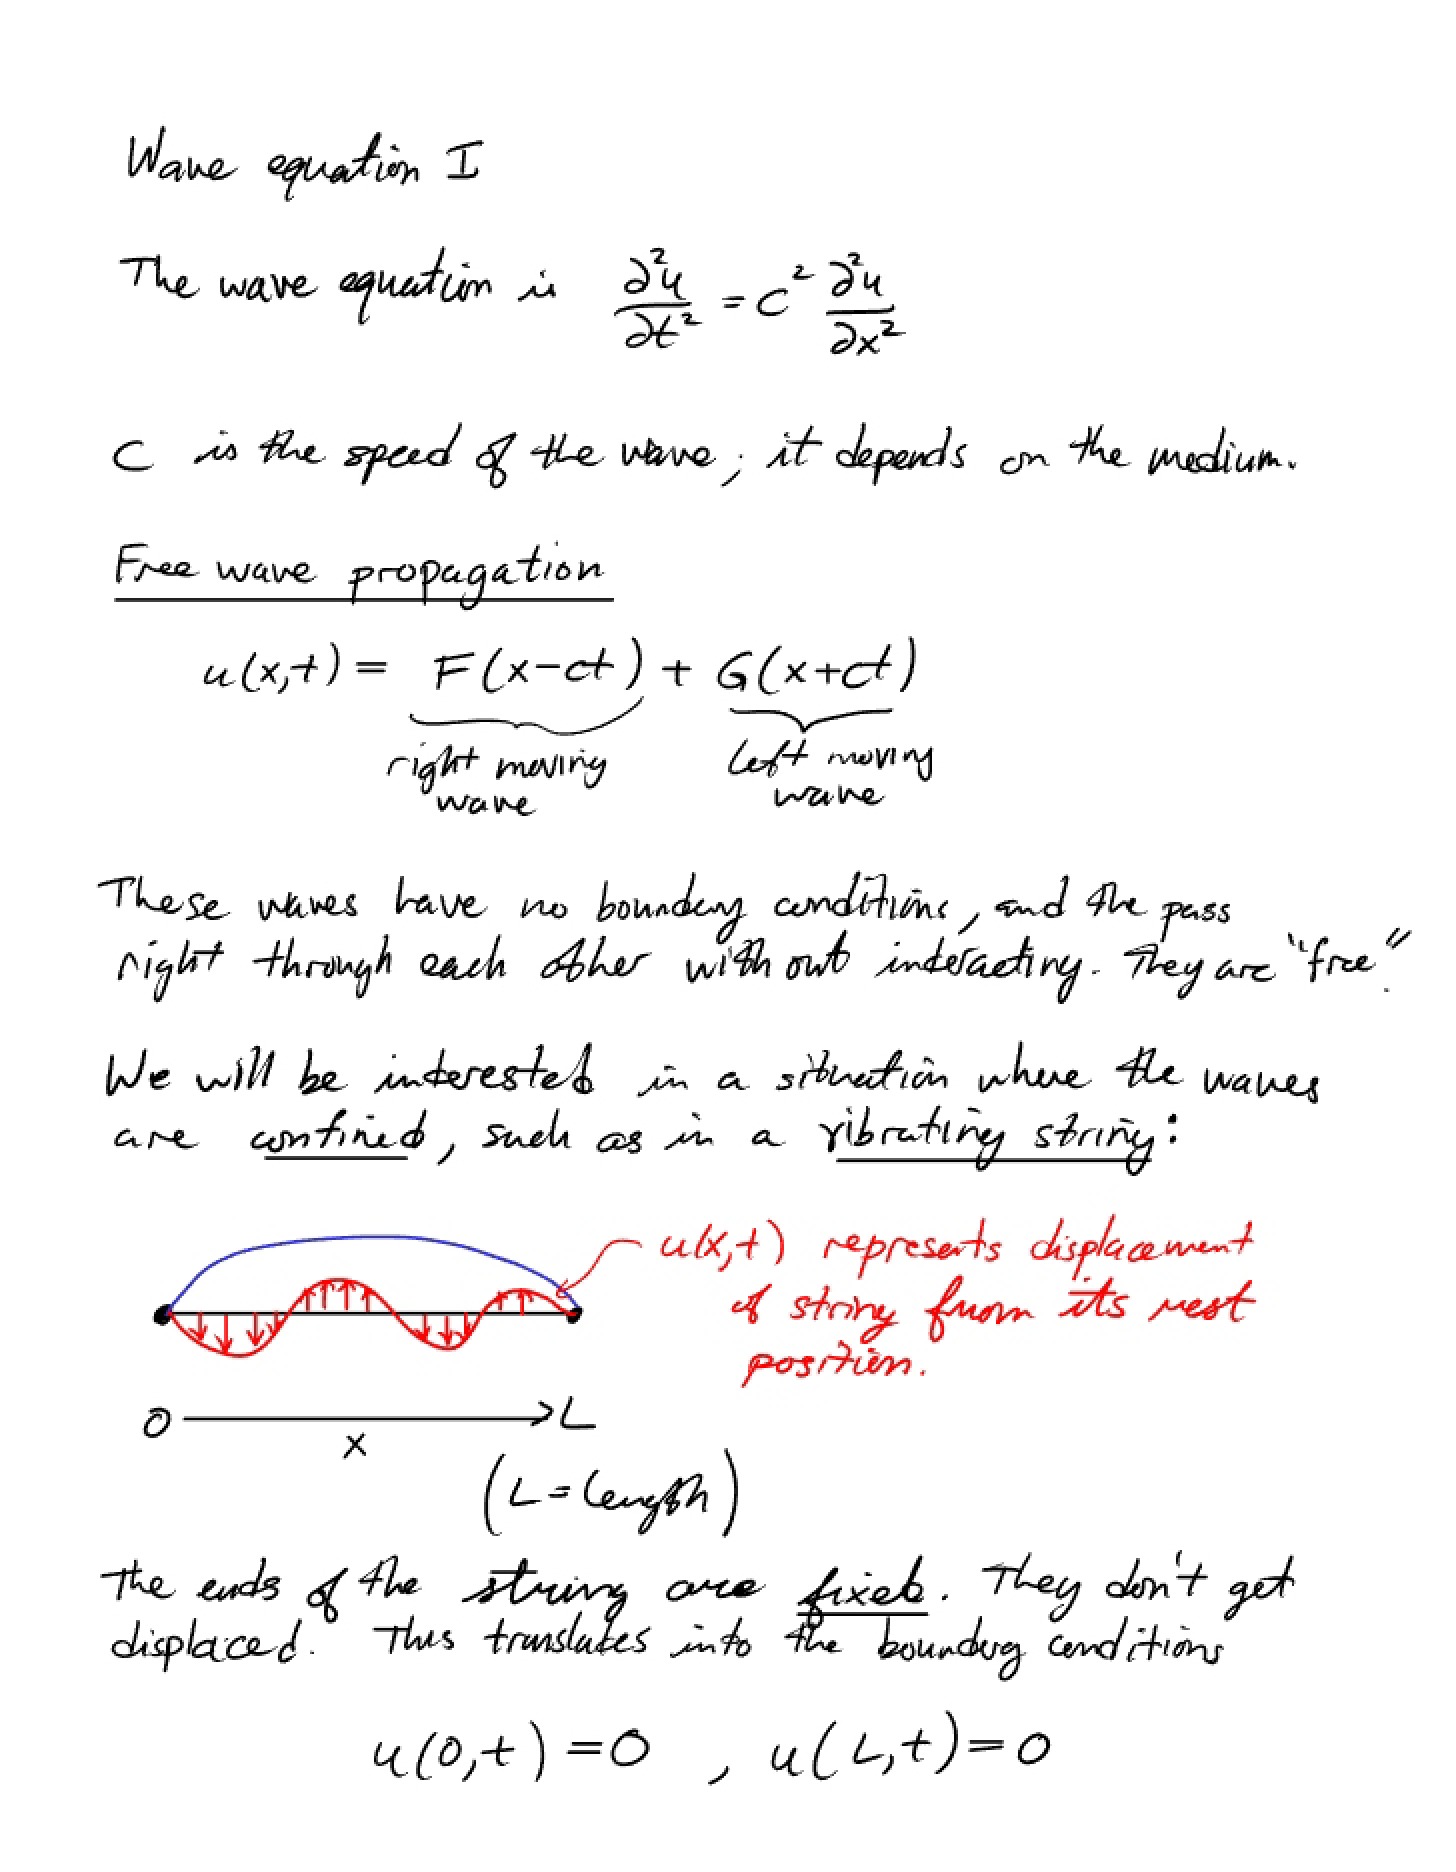 Wave equation I
The wave equation is ∂²u/∂t² = c² ∂²u/∂x²
C is the speed of the wave; it depends on the medium.
Free wave propagation
u(x,t) = F(x-ct) + G(x+ct)
right moving wave
left moving wave
These waves have no boundary conditions, and the pass
right through each other without interacting. They are "free".
We will be interested in a situation where the waves
are confined, such as in a vibrating string:
u(x,t) represents displacement
of string from its rest
position.
0 → L
x
(L = length)
The ends of the string are fixed. They don't get
displaced. This translates into the boundary conditions
u(0,t) = 0 , u(L,t) = 0